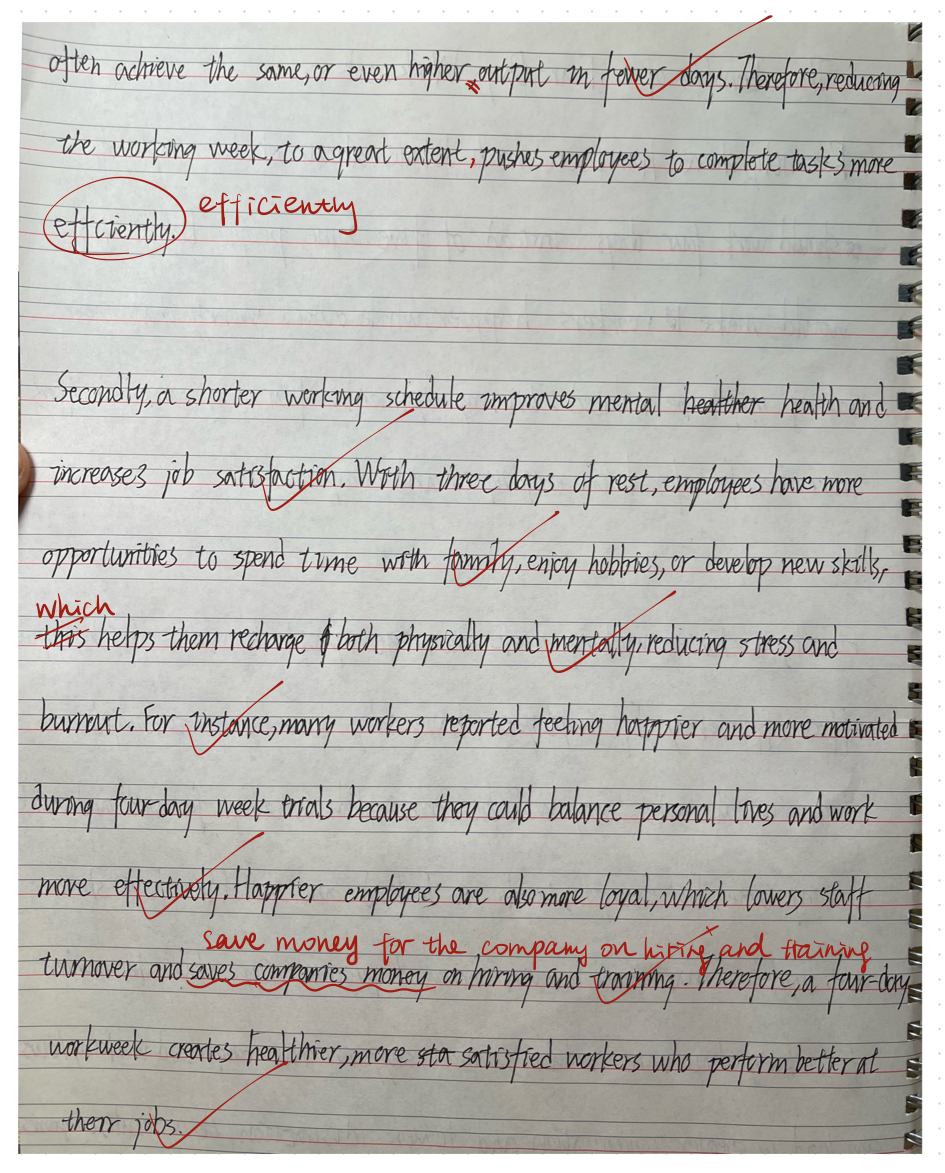 often achieve the same, or even higher, output in fewer days. Therefore, reducing
the working week, to a great extent, pushes employees to complete tasks more
effciently. efficiently
Secondly, a shorter working schedule improves mental healther health and
increases job satisfaction. With three days of rest, employees have more
opportunities to spend time with family, enjoy hobbies, or develop new skills,
which
this helps them recharge both physically and mentally, reducing stress and
burnout. For instance, many workers reported feeling happier and more motivated
during four-day week trials because they could balance personal lives and work
more effectively. Happier employees are also more loyal, which lowers staff
save money for the company on hiring and training
turnover and saves companies money on hiring and training. Therefore, a four-day
workweek creates healthier, more sta satisfied workers who perform better at
their jobs.